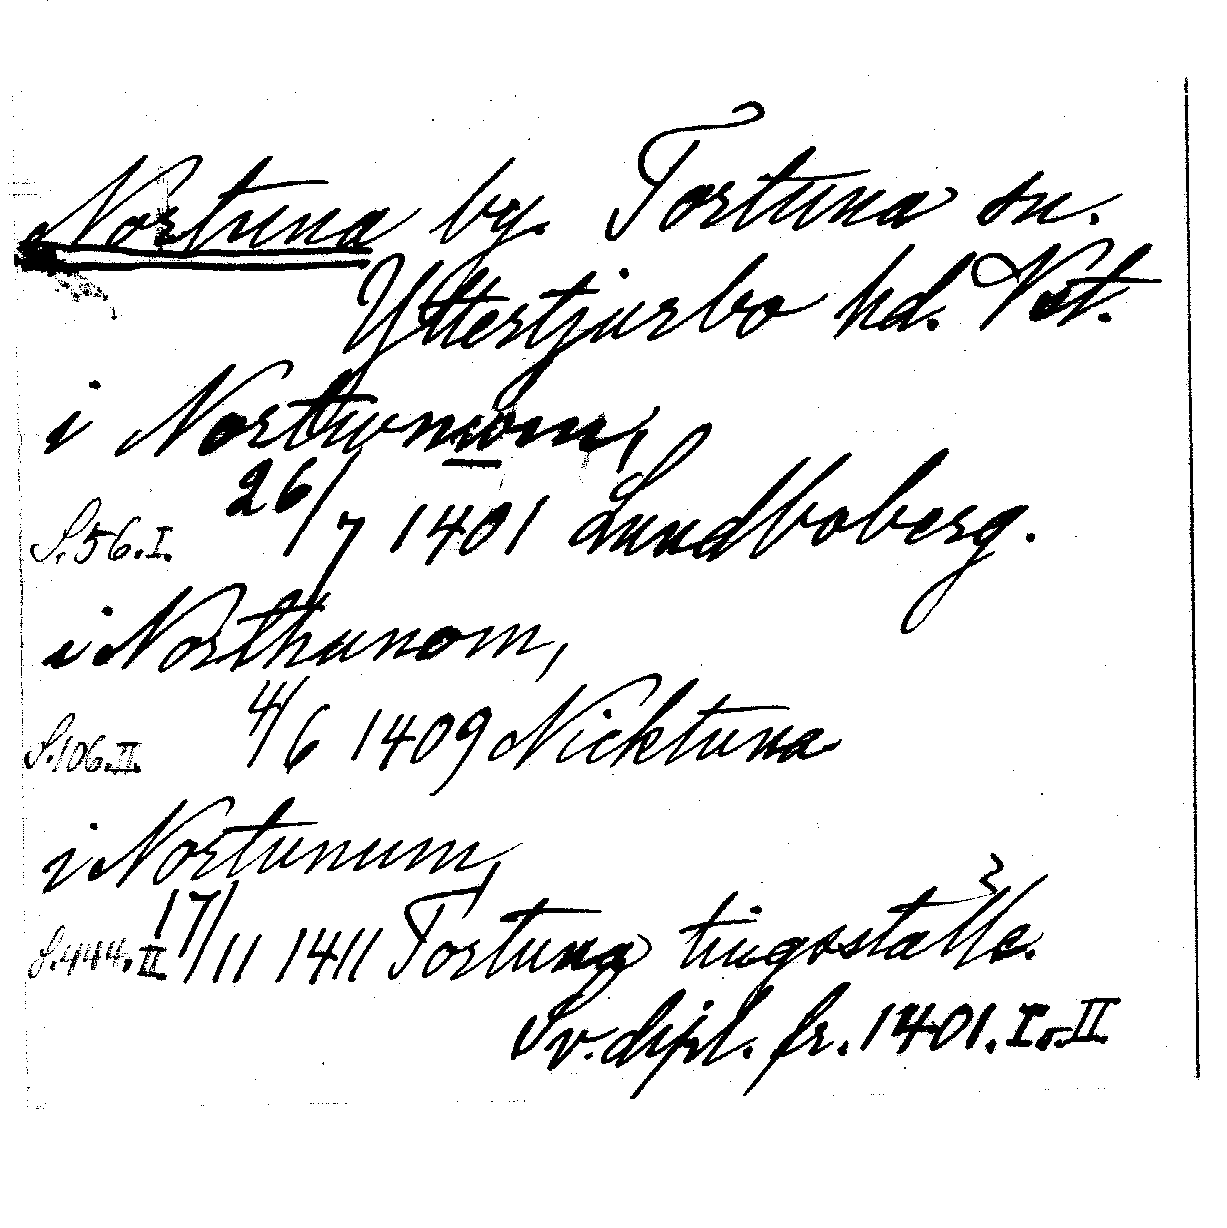 Nortuna by. Tortuna sn.
Yttertjurbo hd. Vst.
i Nortunom,
S. 56. I. 26/7 1401 Lundboberg.
i Northunom,
S. 106. II. 4/6 1409 Nicktuna
i Nortunum,
S. 444. II 17/11 1411 Tortuna tingsställe.
Sv. dipl. fr. 1401. I. o. II